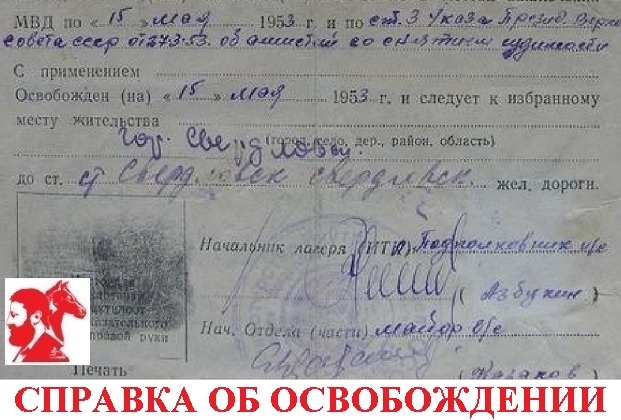 МВД по «15» мая 1953 г. и по ст. 3 Указа Презид. Верхо
совета ссср от 27 3-53. об амнистии со снятием судимости
С применением
Освобожден (на) «15» мая 1953 г. и следует к избранному
месту жительства
гор. Свердловск.
(город, село, дер., район, область)
до ст. ст Свердловск свердловск. жел. дороги.
Начальник лагеря (ИТК) Подполковник и/с
(Азбукин)
Нач. Отдела (части) майор в/с
(Казаков)
правой руки
Печать
СПРАВКА ОБ ОСВОБОЖДЕНИИ